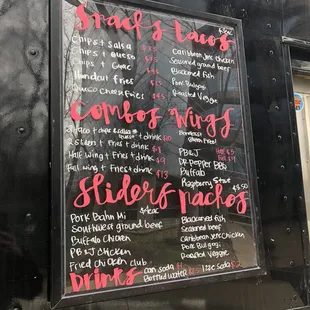 Snacks
Chips + Salsa $3.5
Chips + Queso
Chips + Guac
Handcut Fries
Queso Chz Fries
Tacos
Caribbean Jerk Chicken
Seasoned ground beef
Blackened fish
Pork Bulgogi
Roasted Veggie
Combos
2 sliders + Fries + drink
Half wing + Fries + drink $9
Full wing + Fries + drink $13
Wings
PB & J
DR. PEPPER BBQ
Buffalo
Raspberry
Sliders
Pork Bahn Mi
Southwest ground beef
Buffalo Chicken
PB & J Chicken
Fried Chicken club
Nachos
$9.50
Blackened fish
Seasoned beef
Caribbean Jerk Chicken
Pork Bulgogi
Roasted Veggie
Drinks
can soda
Bottled water